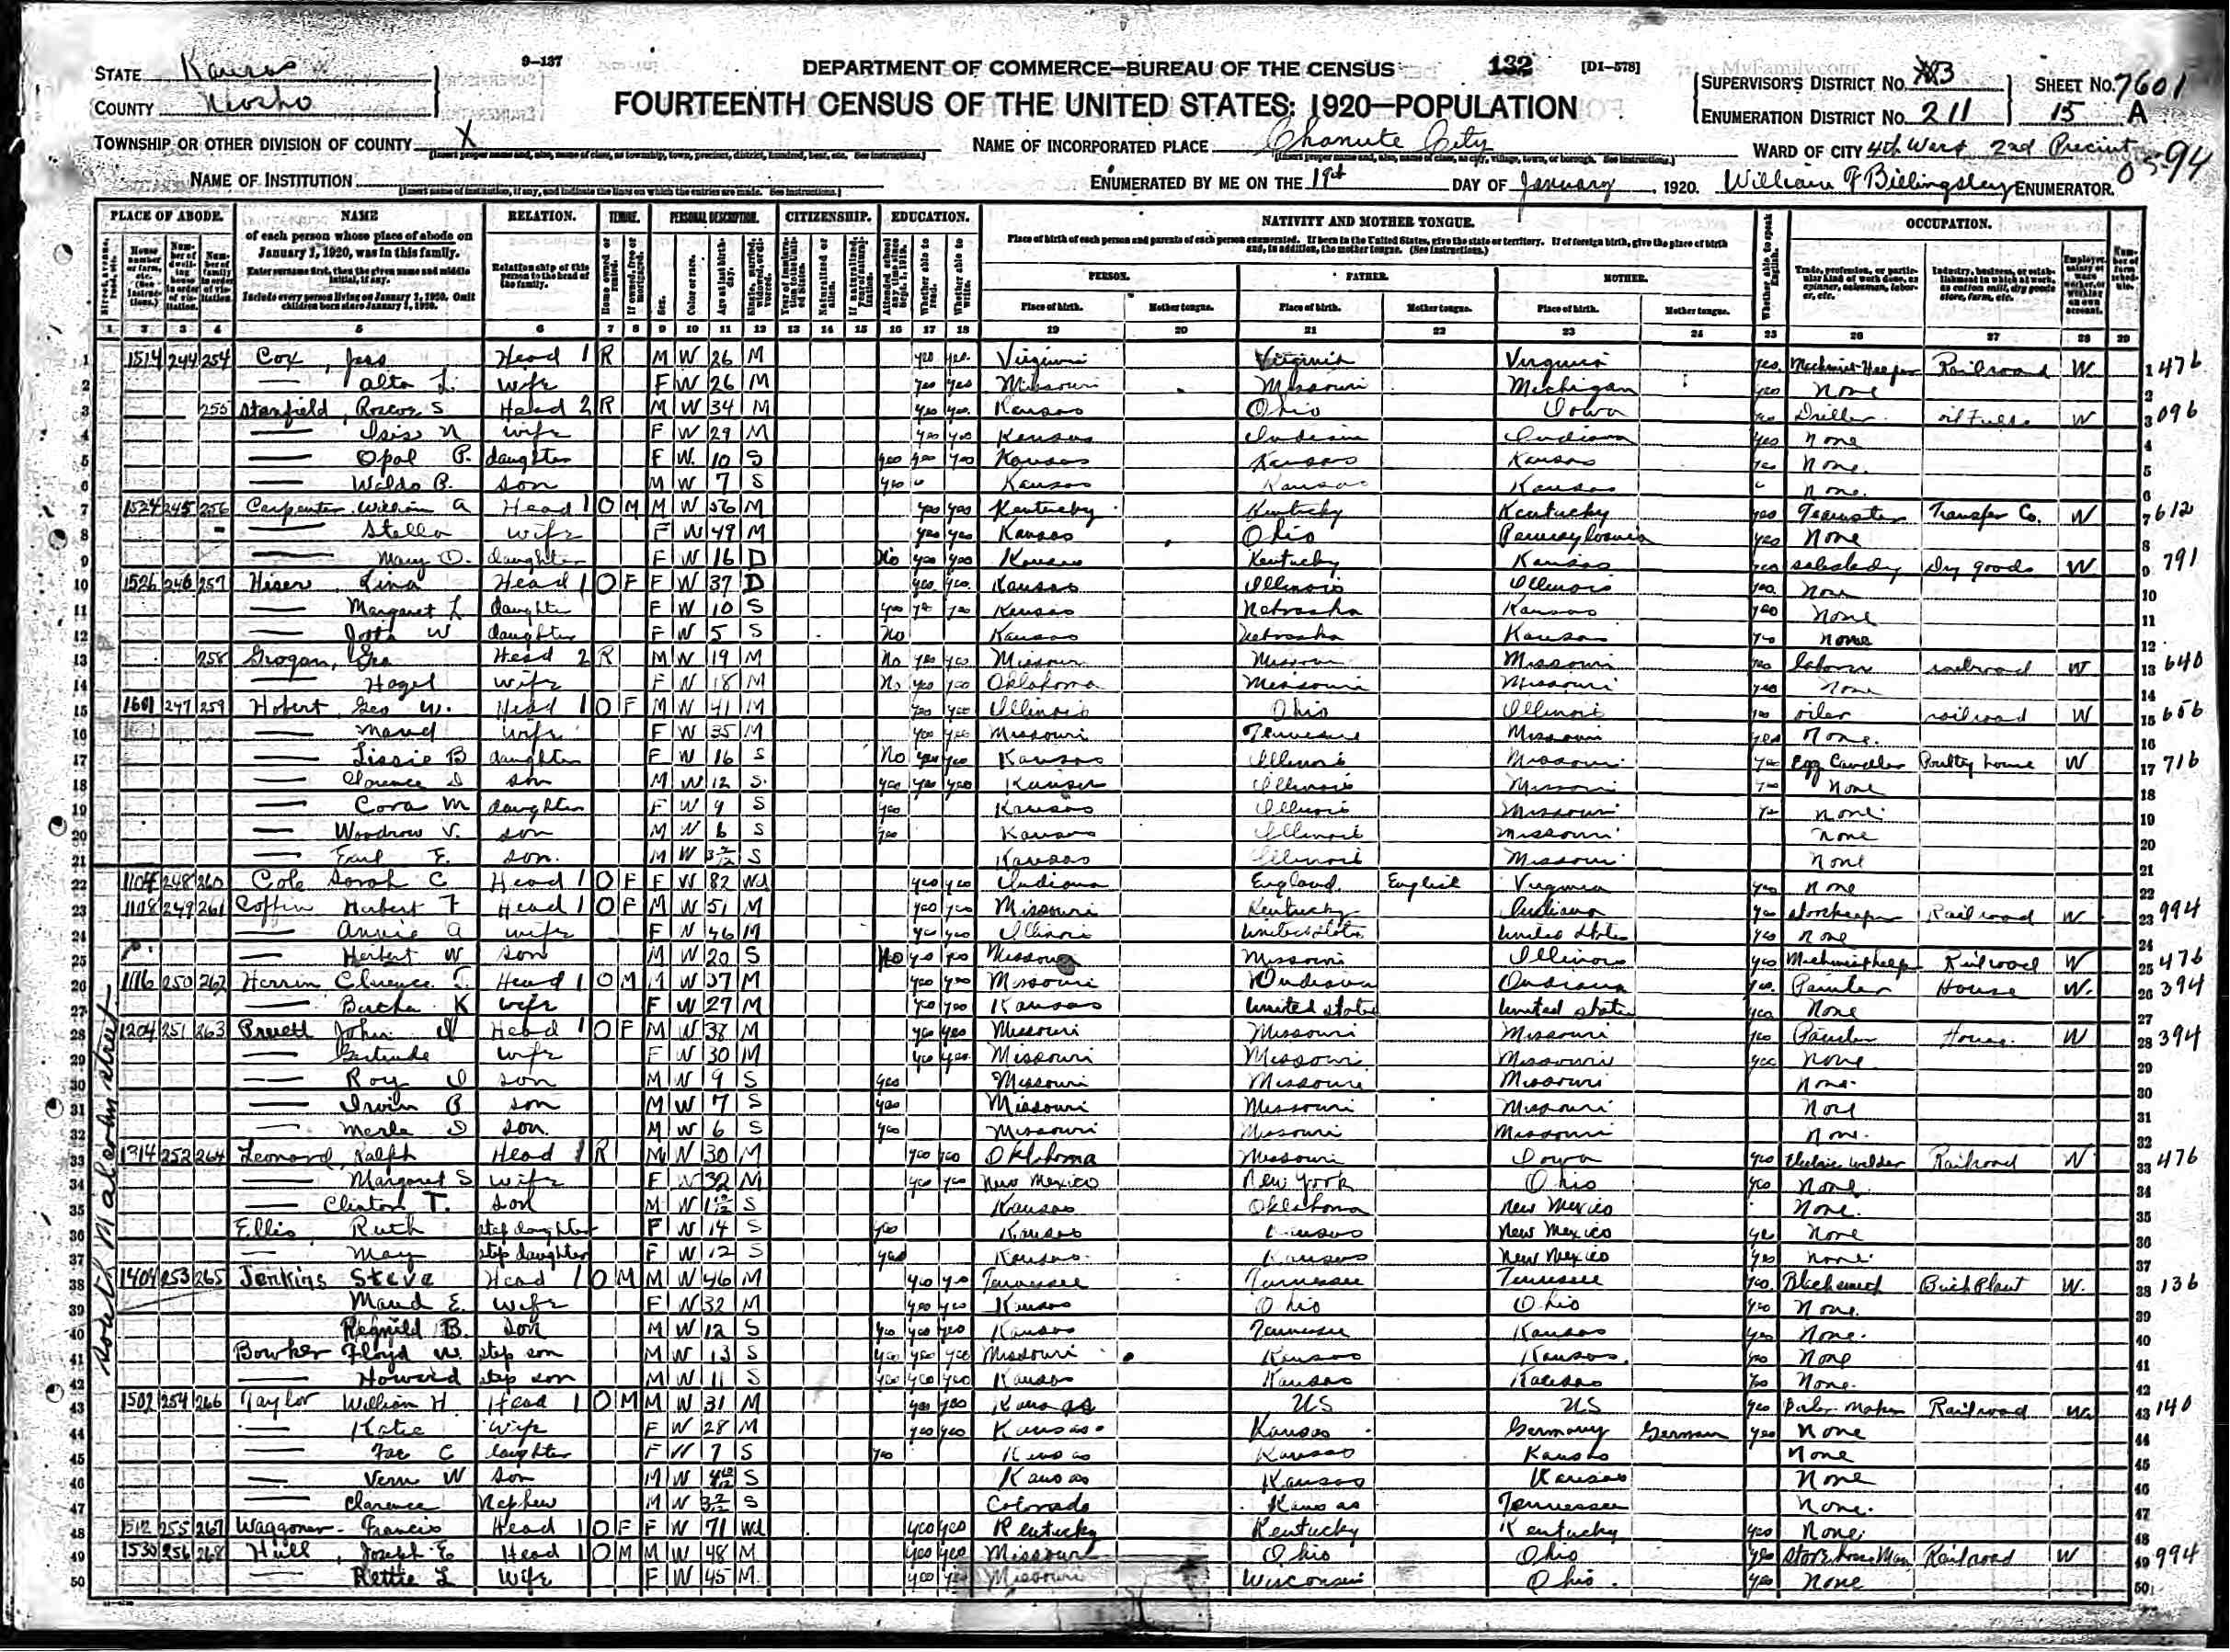 STATE Kansas
COUNTY Neosho
9-137
DEPARTMENT OF COMMERCE—BUREAU OF THE CENSUS
132
[D1-578]
MyFamily.com
FOURTEENTH CENSUS OF THE UNITED STATES: 1920—POPULATION
SUPERVISOR'S DISTRICT No. 3
ENUMERATION DISTRICT No. 211
SHEET No. 7601
15 A
TOWNSHIP OR OTHER DIVISION OF COUNTY X
NAME OF INCORPORATED PLACE Chanute City
WARD OF CITY 4th Ward 2nd Precinct
NAME OF INSTITUTION
ENUMERATED BY ME ON THE 19th DAY OF January, 1920. William F Billingsley ENUMERATOR.
0594
PLACE OF ABODE. NAME RELATION. TENURE. PERSONAL DESCRIPTION. CITIZENSHIP. EDUCATION. NATIVITY AND MOTHER TONGUE. OCCUPATION.
of each person whose place of abode on January 1, 1920, was in this family.
Enter surname first, then the given name and middle initial, if any.
Include every person living on January 1, 1920. Omit children born since January 1, 1920.
Relationship of this person to the head of the family.
Place of birth of each person and parents of each person enumerated. If born in the United States, give the state or territory. If of foreign birth, give the place of birth and, in addition, the mother tongue. (See Instructions.)
PERSON. FATHER. MOTHER.
Place of birth. Mother tongue. Place of birth. Mother tongue. Place of birth. Mother tongue.
1 2 3 4 5 6 7 8 9 10 11 12 13 14 15 16 17 18 19 20 21 22 23 24 25 26 27 28 29
South Malcolm Street
1 1514 244 254 Cox, Jess Head 1 R M W 26 M yes yes Virginia Virginia Virginia yes Machinist Helper Railroad W 1 476
2 — Alta L. wife F W 26 M yes yes Missouri Missouri Michigan yes None 2
3 255 Stanfield, Roscoe S Head 2 R M W 34 M yes yes Kansas Ohio Iowa yes Driller oil Fields W 3 096
4 — Isis N wife F W 29 M yes yes Kansas Indiana Indiana yes None 4
5 — Opal P. daughter F W 10 S yes yes yes Kansas Kansas Kansas yes None. 5
6 — Waldo B. son M W 7 S yes Kansas Kansas Kansas None. 6
7 1524 245 256 Carpenter William A Head 1 O M M W 56 M yes yes Kentucky Kentucky Kentucky yes Teamster Transfer Co. W 7 612
8 — Stella wife F W 49 M yes yes Kansas Ohio Pennsylvania yes None 8
9 — Mary O. daughter F W 16 D No yes yes Kansas Kentucky Kansas yes saleslady Dry goods W 9 791
10 1526 246 257 Hiser, Lina Head 1 O F F W 37 D yes yes Kansas Illinois Illinois yes None 10
11 — Margaret L daughter F W 10 S yes yes yes Kansas Nebraska Kansas yes None 11
12 — W daughter F W 5 S No Kansas Nebraska Kansas yes None 12
13 258 Grogan, Ira Head 2 R M W 19 M No yes yes Missouri Missouri Missouri yes laborer railroad W 13 640
14 — Hazel wife F W 18 M No yes yes Oklahoma Missouri Missouri yes None 14
15 1601 247 259 Hobert, Geo W. Head 1 O F M W 41 M yes yes Illinois Ohio Illinois yes oiler railroad W 15 656
16 — Maud wife F W 35 M yes yes Missouri Tennessee Missouri yes None. 16
17 — Lissie B daughter F W 16 S No yes yes Kansas Illinois Missouri yes Egg Candler Poultry house W 17 716
18 — Clarence D son M W 12 S yes yes yes Kansas Illinois Missouri yes None 18
19 — Cora M daughter F W 9 S yes Kansas Illinois Missouri yes None 19
20 — Woodrow V. son M W 6 S yes Kansas Illinois Missouri None 20
21 — Earl E. son. M W 3 2/12 S Kansas Illinois Missouri None 21
22 1104 248 260 Cole Sarah C Head 1 O F F W 82 Wd yes yes Indiana England English Virginia yes None 22
23 1108 249 261 Coffin Herbert F Head 1 O F M W 51 M yes yes Missouri Kentucky Indiana yes storekeeper Railroad W 23 994
24 — Annie A wife F W 46 M yes yes Illinois United States United States yes None 24
25 — Herbert W son M W 20 S No yes yes Missouri Missouri Illinois yes Machinist help Railroad W 25 476
26 1116 250 262 Herrin Clarence T. Head 1 O M M W 37 M yes yes Missouri Indiana Indiana yes Painter House W. 26 394
27 — Bertha K wife F W 27 M yes yes Kansas United States United States yes None 27
28 1204 251 263 Pruett John Head 1 O F M W 38 M yes yes Missouri Missouri Missouri yes Painter House W 28 394
29 — Gertrude wife F W 30 M yes yes Missouri Missouri Missouri yes None 29
30 — Roy O son M W 9 S yes Missouri Missouri Missouri None 30
31 — Irvin B son M W 7 S yes Missouri Missouri Missouri None 31
32 — Merle D son. M W 6 S yes Missouri Missouri Missouri None. 32
33 1314 252 264 Leonard, Ralph Head 1 R M W 30 M yes yes Oklahoma Missouri Iowa yes Electric Welder Railroad W 33 476
34 — Margaret S wife F W 32 M yes yes New Mexico New York Ohio yes None 34
35 — Clinton T. son M W S Kansas Oklahoma New Mexico None. 35
36 Ellis, Ruth step daughter F W 14 S yes Kansas Kansas New Mexico yes None 36
37 — May step daughter F W 12 S yes Kansas Kansas New Mexico yes None 37
38 1404 253 265 Jenkins Steve Head 1 O M M W 46 M yes yes Tennessee Tennessee Tennessee yes Blacksmith Brick Plant W. 38 136
39 Maud E. wife F W 32 M yes yes Kansas Ohio Ohio yes None. 39
40 Regnild B. son M W 12 S yes yes yes Kansas Tennessee Kansas yes None. 40
41 Bowker Floyd W. step son M W 13 S yes yes yes Missouri Kansas Kansas yes None 41
42 — Howard step son M W 11 S yes yes yes Kansas Kansas Kansas yes None. 42
43 1502 254 266 Taylor William H. Head 1 O M M W 31 M yes yes Kansas US US yes Boiler Maker Railroad W. 43 140
44 — Katie wife F W 28 M yes yes Kansas Kansas Germany German yes None 44
45 — Fae C daughter F W 7 S yes Kansas Kansas Kansas None 45
46 — Vern W son M W S Kansas Kansas Kansas None 46
47 — Clarence Nephew M W 3 2/12 S Colorado Kansas Tennessee None. 47
48 1512 255 267 Waggoner Francis Head 1 O F F W 71 Wd yes yes Kentucky Kentucky Kentucky yes None 48
49 1530 256 268 Hull, Joseph E Head 1 O M M W 48 M yes yes Missouri Ohio Ohio yes Store house Man Railroad W 49 994
50 — Rettie L wife F W 45 M yes yes Missouri Wisconsin Ohio. yes None 50